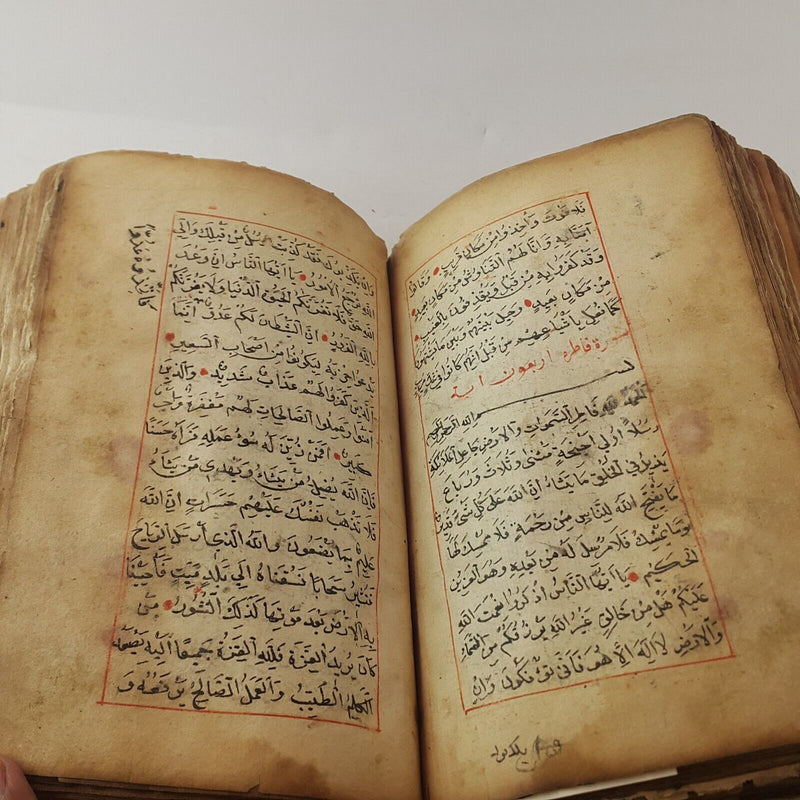 فلا فوت واخذوا من مكان قريب وقالوا
آمنا به وانا لهم التناوش من مكان بعيد
وقد كفروا به من قبل ويقذفون بالغيب
من مكان بعيد وحيل بينهم وبين ما يشتهون
كما فعل باشياعهم من قبل انهم كانوا في
سورة فاطر اربعون اية
بسم الله الرحمن الرحيم
الحمد لله فاطر السموات والارض جاعل الملائكة
رسلا اولي اجنحة مثنى وثلاث ورباع
يزيد في الخلق ما يشاء ان الله على كل شئ قدير
ما يفتح الله للناس من رحمة فلا ممسك لها
وما يمسك فلا مرسل له من بعده وهو العزيز
الحكيم يا ايها الناس اذكروا نعمت الله
عليكم هل من خالق غير الله يرزقكم من السماء
والارض لا اله الا هو فانى تؤفكون وان
يكذبوا
وان يكذبوك فقد كذبت رسل من قبلك والى
الله ترجع الامور يا ايها الناس ان وعد
الله حق فلا تغرنكم الحيوة الدنيا ولا يغرنكم
بالله الغرور ان الشيطان لكم عدو انما
يدعوا حزبه ليكونوا من اصحاب السعير
الذين كفروا لهم عذاب شديد والذين
امنوا وعملوا الصالحات لهم مغفرة واجر
كبير افمن زين له سوء عمله فرآه حسنا
فان الله يضل من يشاء ويهدي من يشاء
فلا تذهب نفسك عليهم حسرات ان الله
عليم بما يصنعون والله الذي ارسل الرياح
فتثير سحابا فسقناه الى بلد ميت فاحيينا
به الارض بعد موتها كذلك النشور من
كان يريد العزة فلله العزة جميعا اليه يصعد
الكلم الطيب والعمل الصالح يرفعه و